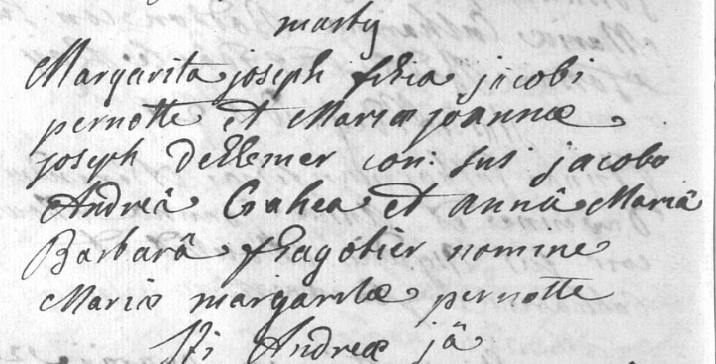 marty
Margarita joseph filia jacobi
pernotte et Mariæ joannæ
joseph dellemer con: sus jacobo
Andreâ Gahea et annâ Mariâ
Barbarâ flagotier nomine
Mariæ margaritæ pernotte
Sti Andreæ jâ